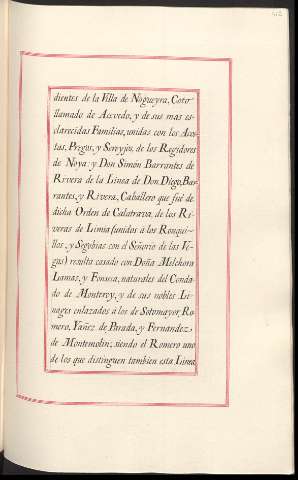 dientes de la Villa de Nogueyra, Coto
llamado de Acevedo, y de sus mas es-
clarecidas Familias, unidas con los Aco-
tas, Prigos, y Sereyjos, de los Regidores
de Noya: y Don Simón Barrantes de
Rivera de la Linea de Don Diego Bar-
rantes, y Rivera, Caballero que fué de
dicha Orden de Calatrava, de los Ri-
veras de Limia (unidos à los Ronqui-
llos, y Segobias con el Señorio de las Ve-
gas) resulta casado con Doña Melchora
Lamas, y Fonseca, naturales del Conda-
do de Monterey, y de sus nobles Li-
nages enlazados á los de Sotomayor, Ro-
mero, Yañez de Parada, y Fernandez
de Montemolin; siendo el Romero uno
de los que distinguen tambien esta Linea